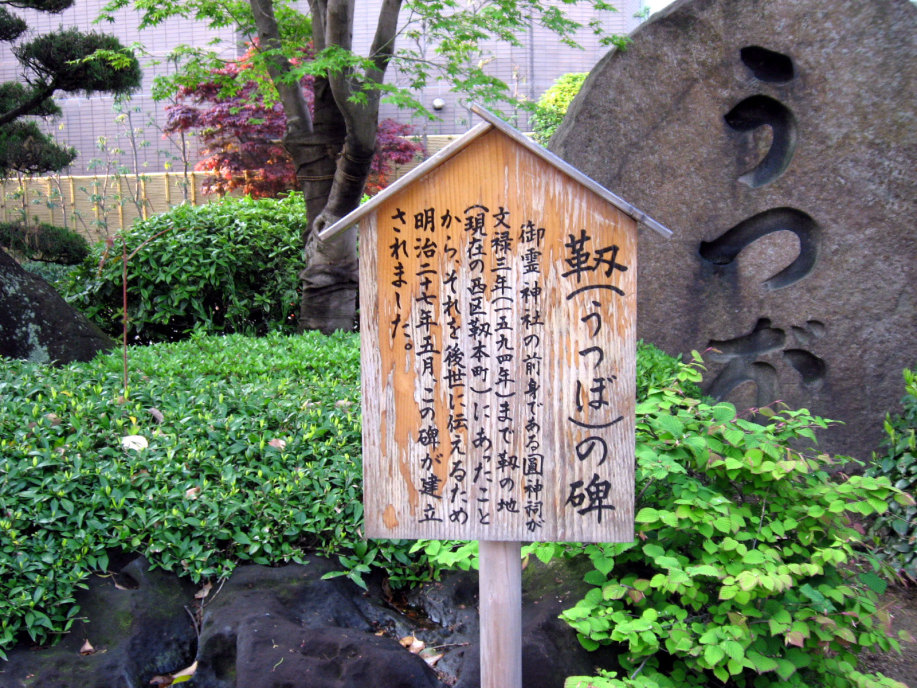 うつぼ
靱(うつぼ)の碑
御霊神社の前身である圓神祠が
文禄三年(一五九四年)まで靱の地
(現在の西区靱本町)にあったこと
から、それを後世に伝えるため
明治二十七年五月、この碑が建立
されました。